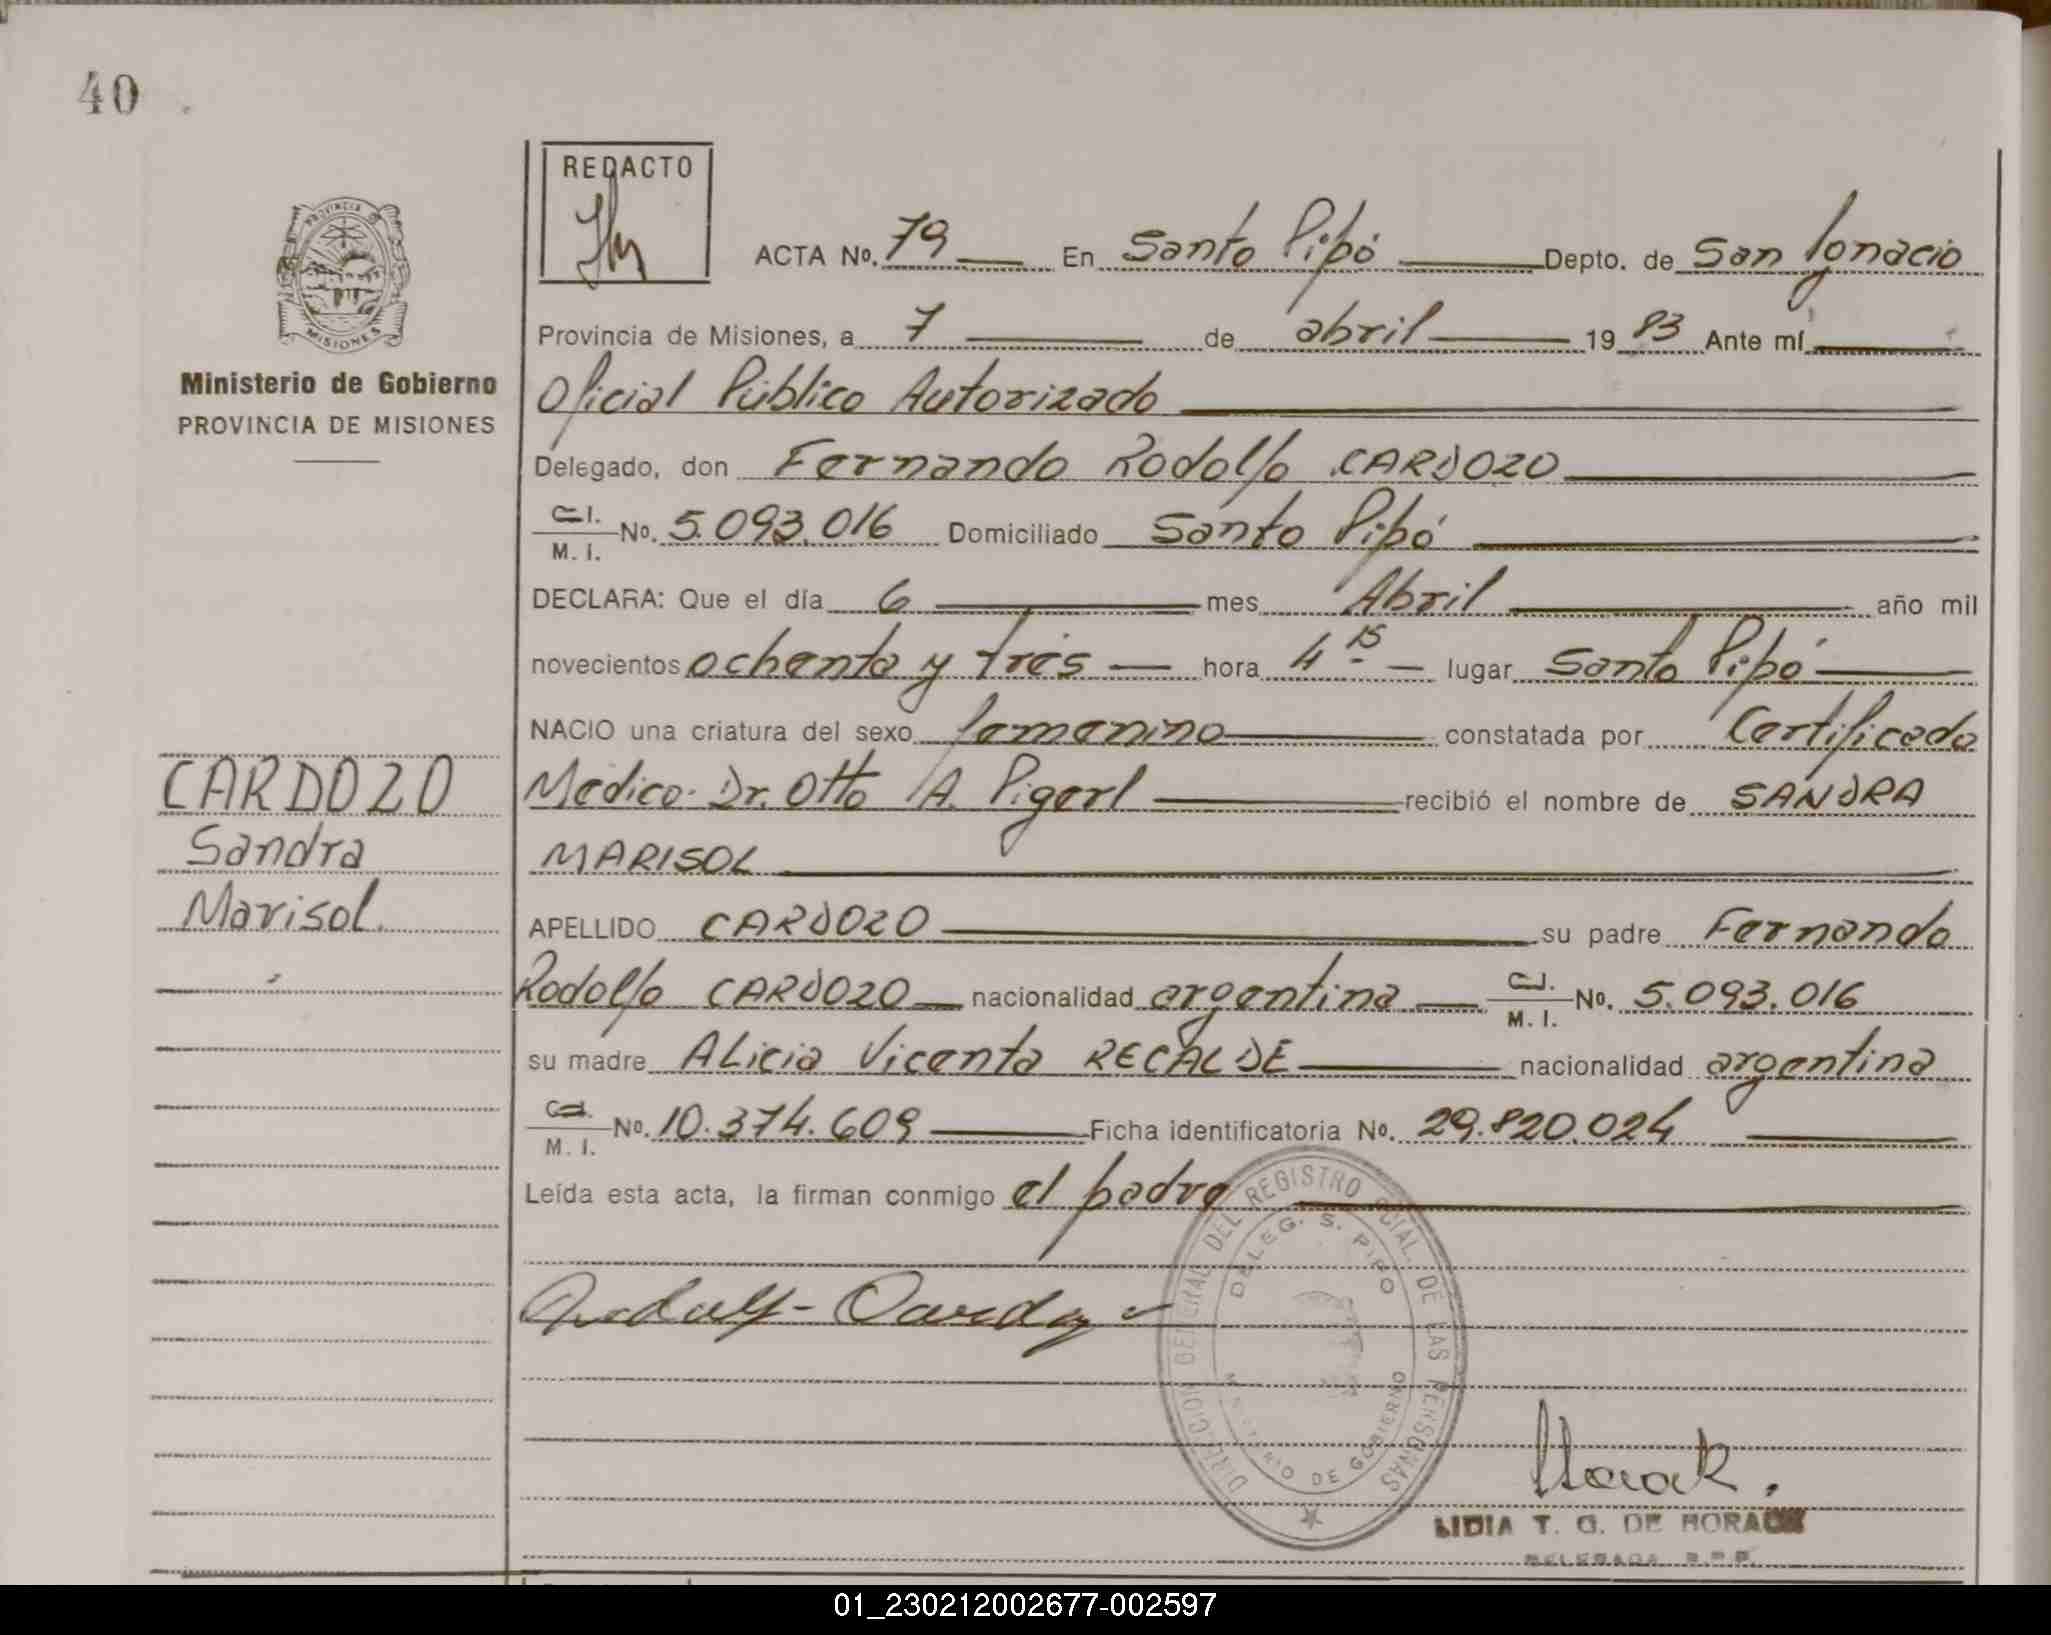 40
REDACTO
ACTA No. 79 En Santo Pipó Depto. de San Ignacio
PROVINCIA
MISIONES
Provincia de Misiones, a 7 de abril 19 83 Ante mí
Ministerio de Gobierno
PROVINCIA DE MISIONES
Oficial Público Autorizado
Delegado, don Fernando Rodolfo CARDOZO
C.I. M. I. No. 5.093.016 Domiciliado Santo Pipó
DECLARA: Que el día 6 mes Abril año mil
novecientos ochenta y tres hora 4 15 lugar Santo Pipó
NACIO una criatura del sexo femenino constatada por Certificado
CARDOZO
Sandra
Marisol.
Médico. Dr. Otto A. Pigerl recibió el nombre de SANDRA
MARISOL
APELLIDO CARDOZO su padre Fernando
Rodolfo CARDOZO nacionalidad argentina C.I. M. I. No. 5.093.016
su madre Alicia Vicenta RECALDE nacionalidad argentina
C.I. M. I. No. 10.374.609 Ficha identificatoria No. 29.820.024
Leída esta acta, la firman conmigo el padre
DIRECCION GENERAL DEL REGISTRO OCIAL. DE LAS PERSONAS
DELEG. S. PIPO
MINISTERIO DE GOBIERNO
Horack.
LIDIA T. G. DE HORACK
DELEGADA R.P.P.
01_230212002677-002597